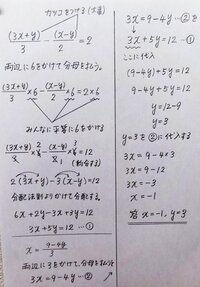 カッコをつける(大事)
(3x+y)/3 - (x-y)/2 = 2
両辺に6をかけて分母をはらう。
(3x+y)/3 ×6 - (x-y)/2 ×6 = 2×6
みんなに平等に6をかける
(3x+y)/3 ×6 - (x-y)/2 ×6 = 12
(約分する)
2(3x+y)-3(x-y)=12
分配法則よりかけて分配する。
6x+2y-3x+3y=12
3x+5y=12 …①
x = (9-4y)/3
両辺に3をかけて、分母をはらう
3x=9-4y …②
3x=9-4y …②を
3x+5y=12 …①
ここに代入
(9-4y)+5y=12
9-4y+5y=12
y=12-9
y=3
y=3を②に代入する
3x=9-4×3
3x=9-12
3x=-3
x=-1
答 x=-1, y=3